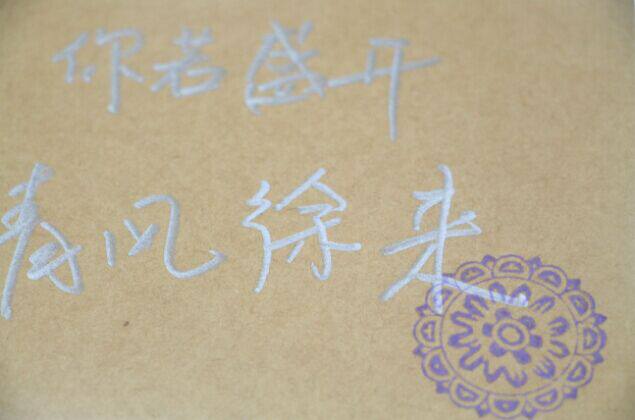 你若盛开
春风徐来